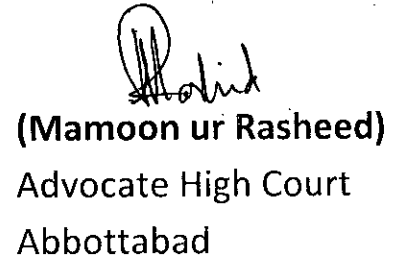 (Mamoon ur Rasheed)
Advocate High Court
Abbottabad